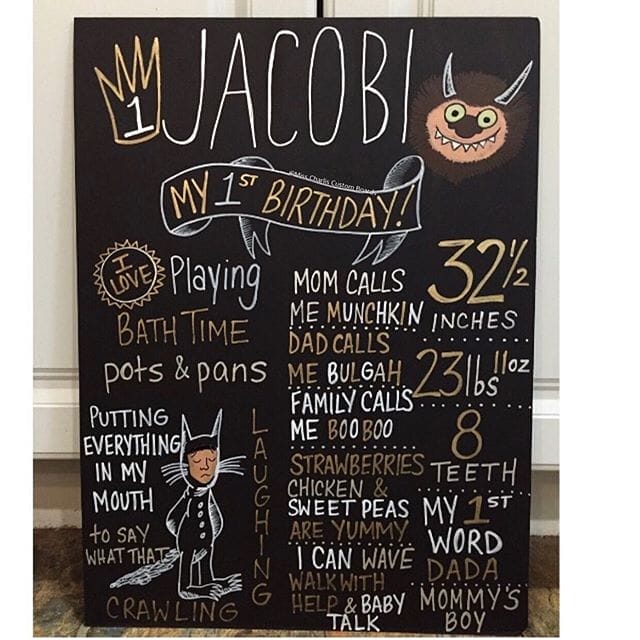 1
JACOBI
©Miss Charlis Custom Boards
MY 1ST BIRTHDAY!
I LOVE
Playing
BATH TIME
pots & pans
PUTTING
EVERYTHING
IN MY
MOUTH
to SAY
WHAT THAT
CRAWLING
LAUGHING
MOM CALLS
ME MUNCHKIN
DAD CALLS
ME BULGAH
FAMILY CALLS
ME BOO BOO
STRAWBERRIES
CHICKEN &
SWEET PEAS
ARE YUMMY
I CAN WAVE
WALK WITH
HELP & BABY
TALK
32 1/2
INCHES
23lbs 11oz
8
TEETH
MY 1ST
WORD
DADA
MOMMY'S
BOY